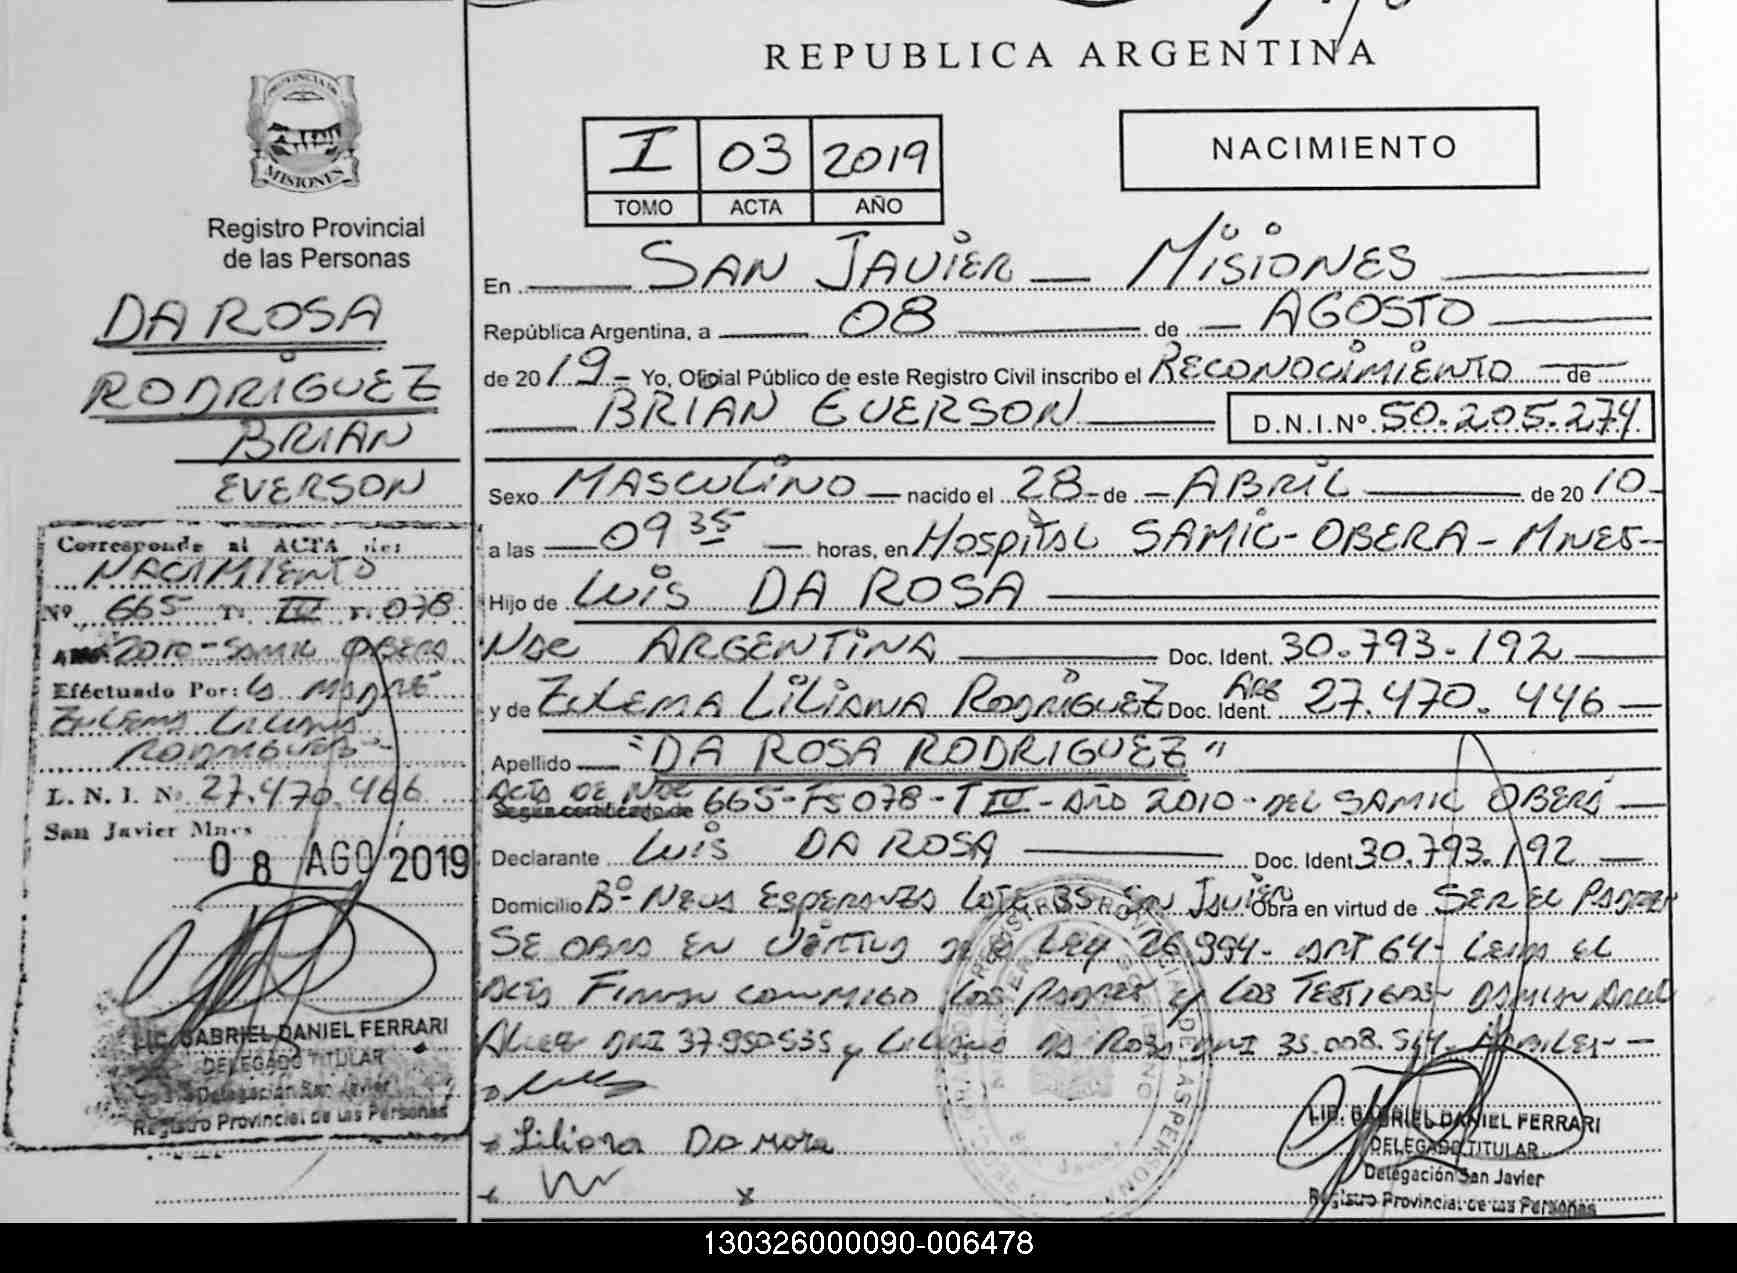 REPUBLICA ARGENTINA
PROVINCIA DE
MISIONES
Registro Provincial
de las Personas
DA ROSA
RODRIGUEZ
BRIAN
EVERSON
Corresponde al ACTA de:
NACIMIENTO
Nº 665 T: III F. 078
2010 - SAMIC OBERA
Eféctuado Por: la MADRE
ZULEMA LILIANA
RODRIGUEZ
L. N. I. Nº 27.470.466
San Javier Mnes
08 AGO 2019
LIC. GABRIEL DANIEL FERRARI
DELEGADO TITULAR
Delegación San Javier
Registro Provincial de las Personas
I 03 2019
TOMO ACTA AÑO
NACIMIENTO
En SAN JAVIER — MISIONES
República Argentina, a 08 de AGOSTO
de 2019 - Yo, Oficial Público de este Registro Civil inscribo el RECONOCIMIENTO de
BRIAN EVERSON D.N.I.Nº 50.205.274
Sexo MASCULINO nacido el 28 de ABRIL de 2010
a las 09 35 horas, en HOSPITAL SAMIC - OBERA - MNES -
Hijo de LUIS DA ROSA
Nac ARGENTINA Doc. Ident. 30.793.192
y de ZULEMA LILIANA RODRIGUEZ Doc. Ident. ARG 27.470.446
Apellido "DA ROSA RODRIGUEZ"
ACTA DE NAC 665 - Fº 078 - T III - AÑO 2010 - DEL SAMIC OBERÁ
Declarante LUIS DA ROSA Doc. Ident 30.793.192
Domicilio Bº NUEVA ESPERANZA LOTE 35 SAN JAVIER Obra en virtud de SER EL PADRE
SE OBRA EN VIRTUD DE LA LEY 26.994 - ART 64 - LEIDA EL
ACTA FIRMAN CONMIGO LOS PADRES y LOS TESTIGOS DAMIAN
DNI y LILIANA DA ROSA DNI 35.008.
Liliana Da Rosa
LIC. GABRIEL DANIEL FERRARI
DELEGADO TITULAR
Delegación San Javier
Registro Provincial de las Personas
130326000090-006478